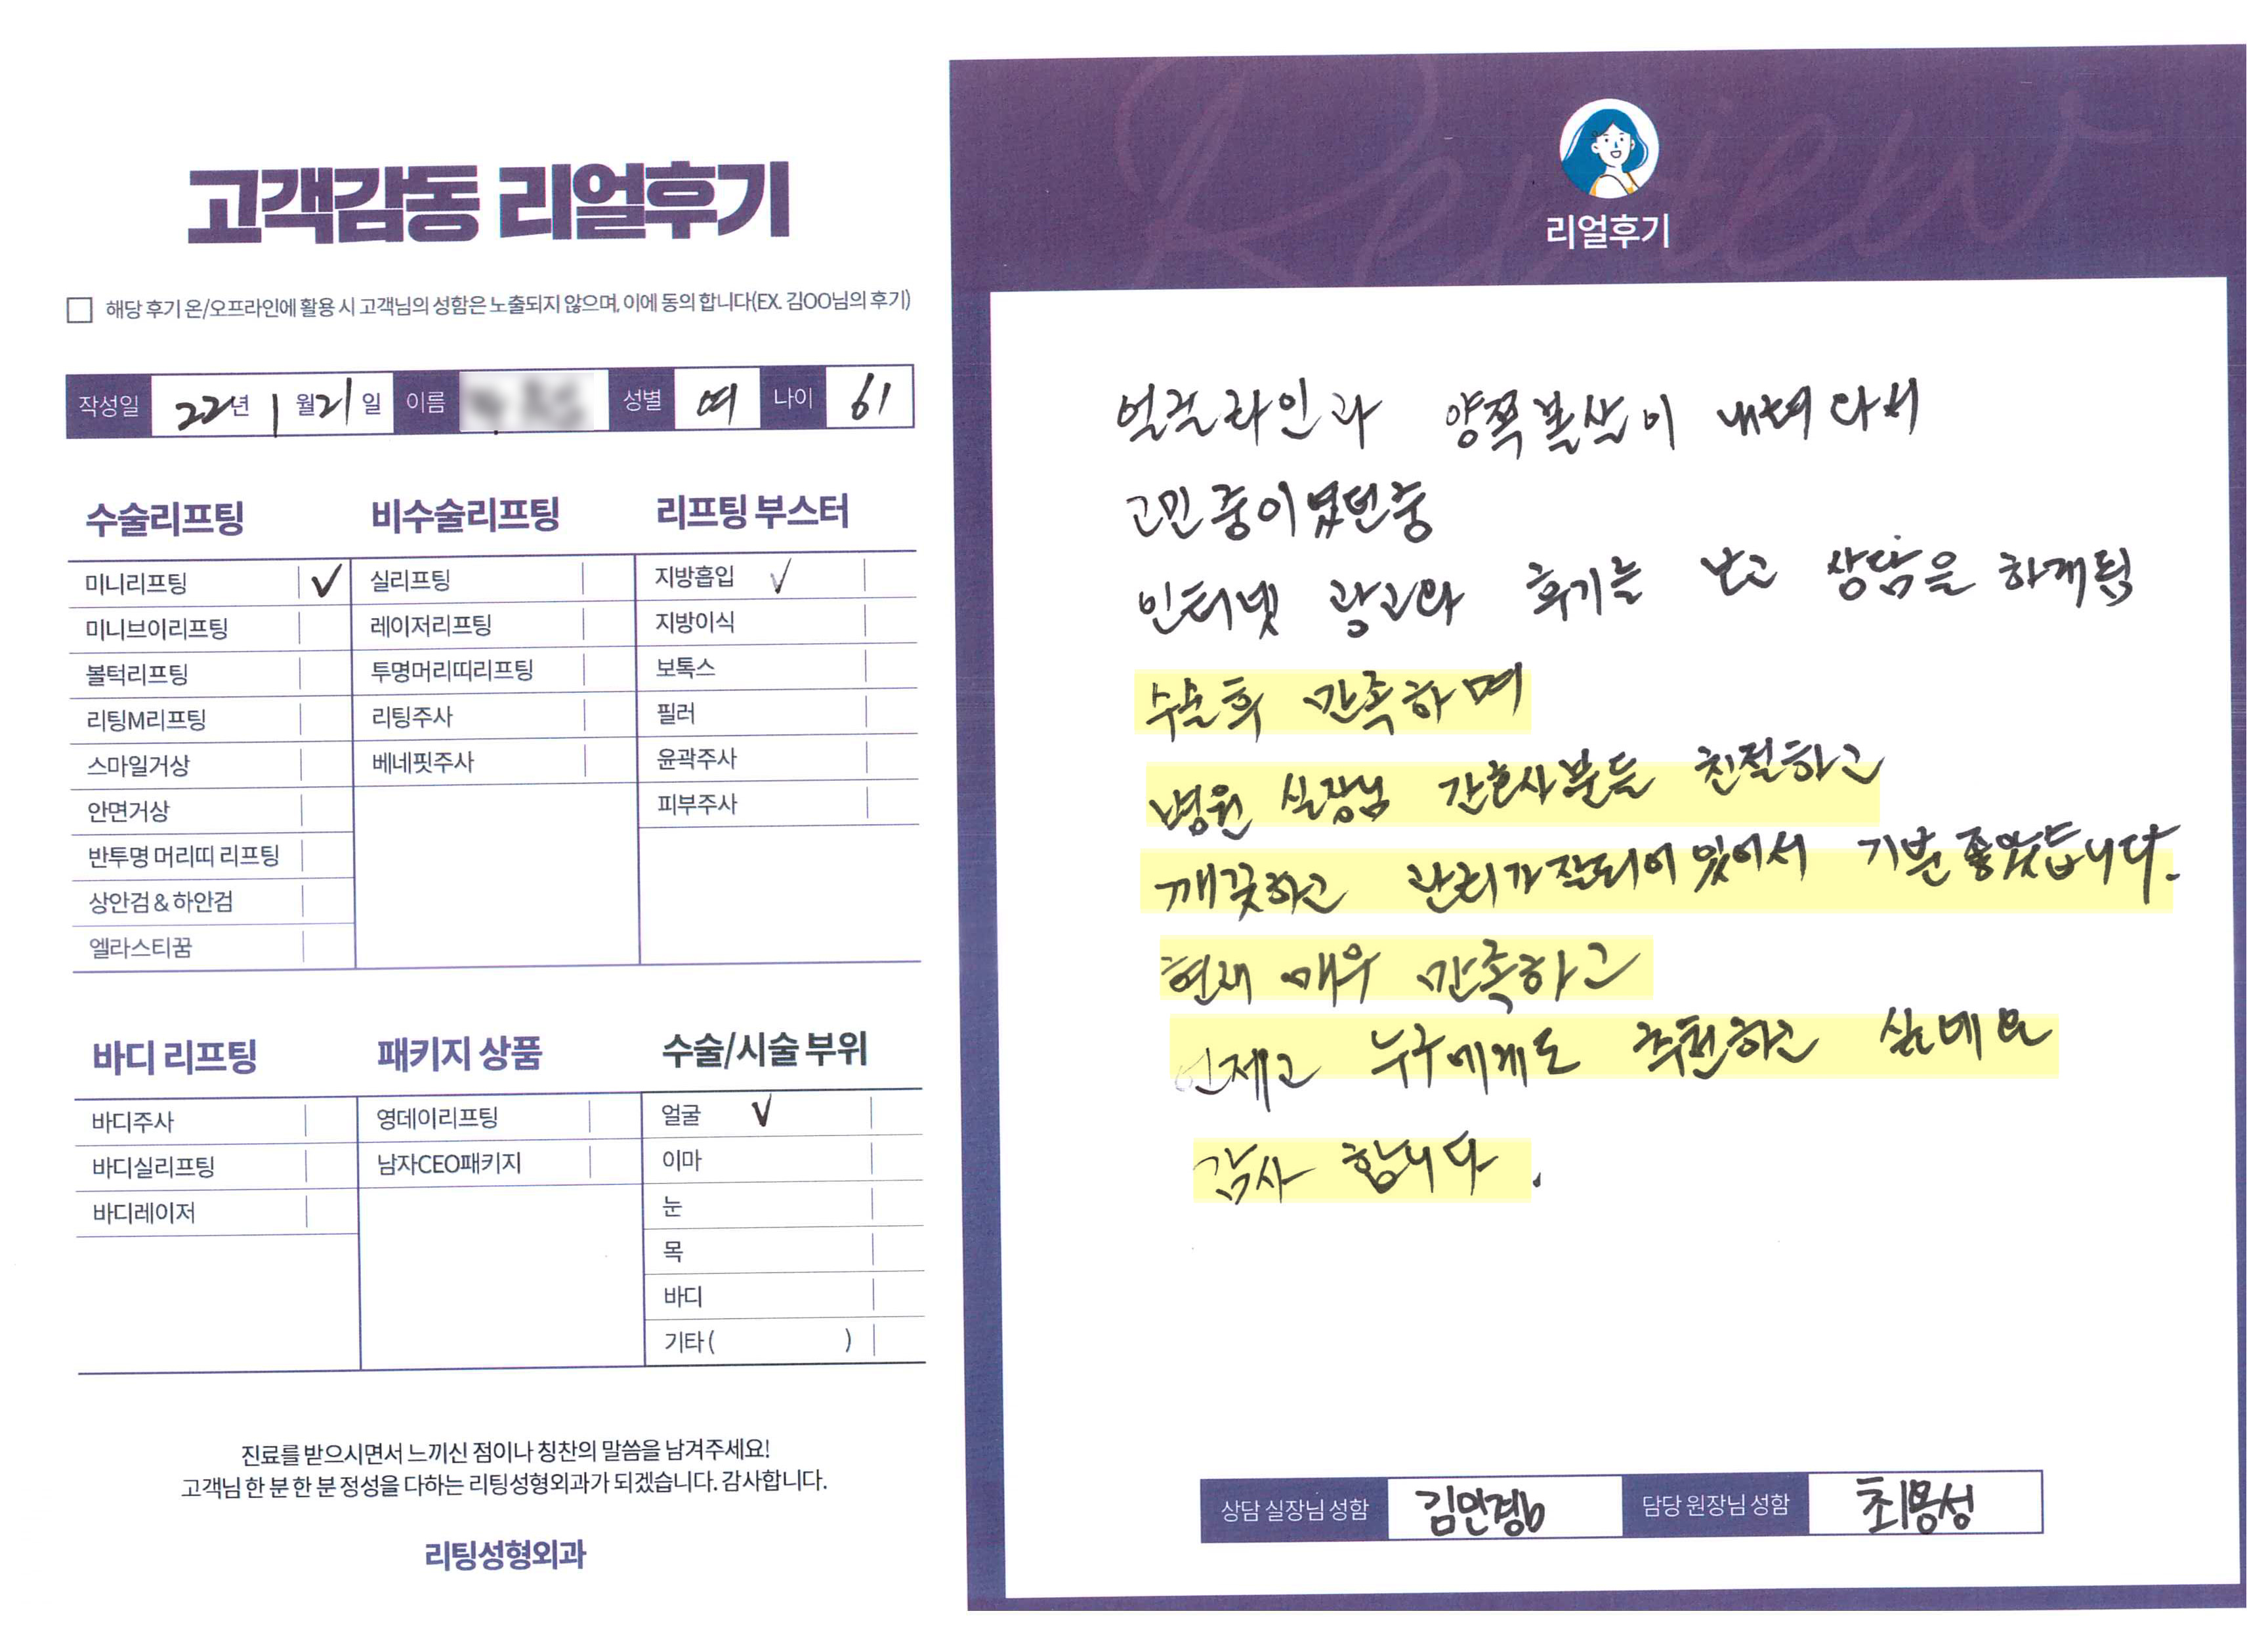 고객감동 리얼후기
해당 후기 온/오프라인에 활용 시 고객님의 성함은 노출되지 않으며, 이에 동의 합니다(EX. 김OO님의 후기)
작성일 22년 1월 21일 이름 성별 여 나이 61
수술리프팅 비수술리프팅 리프팅 부스터
미니리프팅 ✓ 실리프팅 지방흡입 ✓
미니브이리프팅 레이저리프팅 지방이식
볼턱리프팅 투명머리띠리프팅 보톡스
리팅M리프팅 리팅주사 필러
스마일거상 베네핏주사 윤곽주사
안면거상 피부주사
반투명 머리띠 리프팅
상안검 & 하안검
엘라스티꿈
바디 리프팅 패키지 상품 수술/시술 부위
바디주사 영데이리프팅 얼굴 ✓
바디실리프팅 남자CEO패키지 이마
바디레이저 눈
목
바디
기타 ( )
진료를 받으시면서 느끼신 점이나 칭찬의 말씀을 남겨주세요!
고객님 한 분 한 분 정성을 다하는 리팅성형외과가 되겠습니다. 감사합니다.
리팅성형외과
Review
리얼후기
얼굴라인과 양쪽볼살이 내려와서
고민중이였던중
인터넷 광고와 후기를 보고 상담을 하게됨
수술후 만족하며
병원 실장님 간호사분들 친절하고
깨끗하고 관리가잘되어있어서 기분좋았습니다.
현재 매우 만족하고
언제고 누구에게도 추천하고 싶네요
감사 합니다.
상담 실장님 성함 김민경b 담당 원장님 성함 최몽성